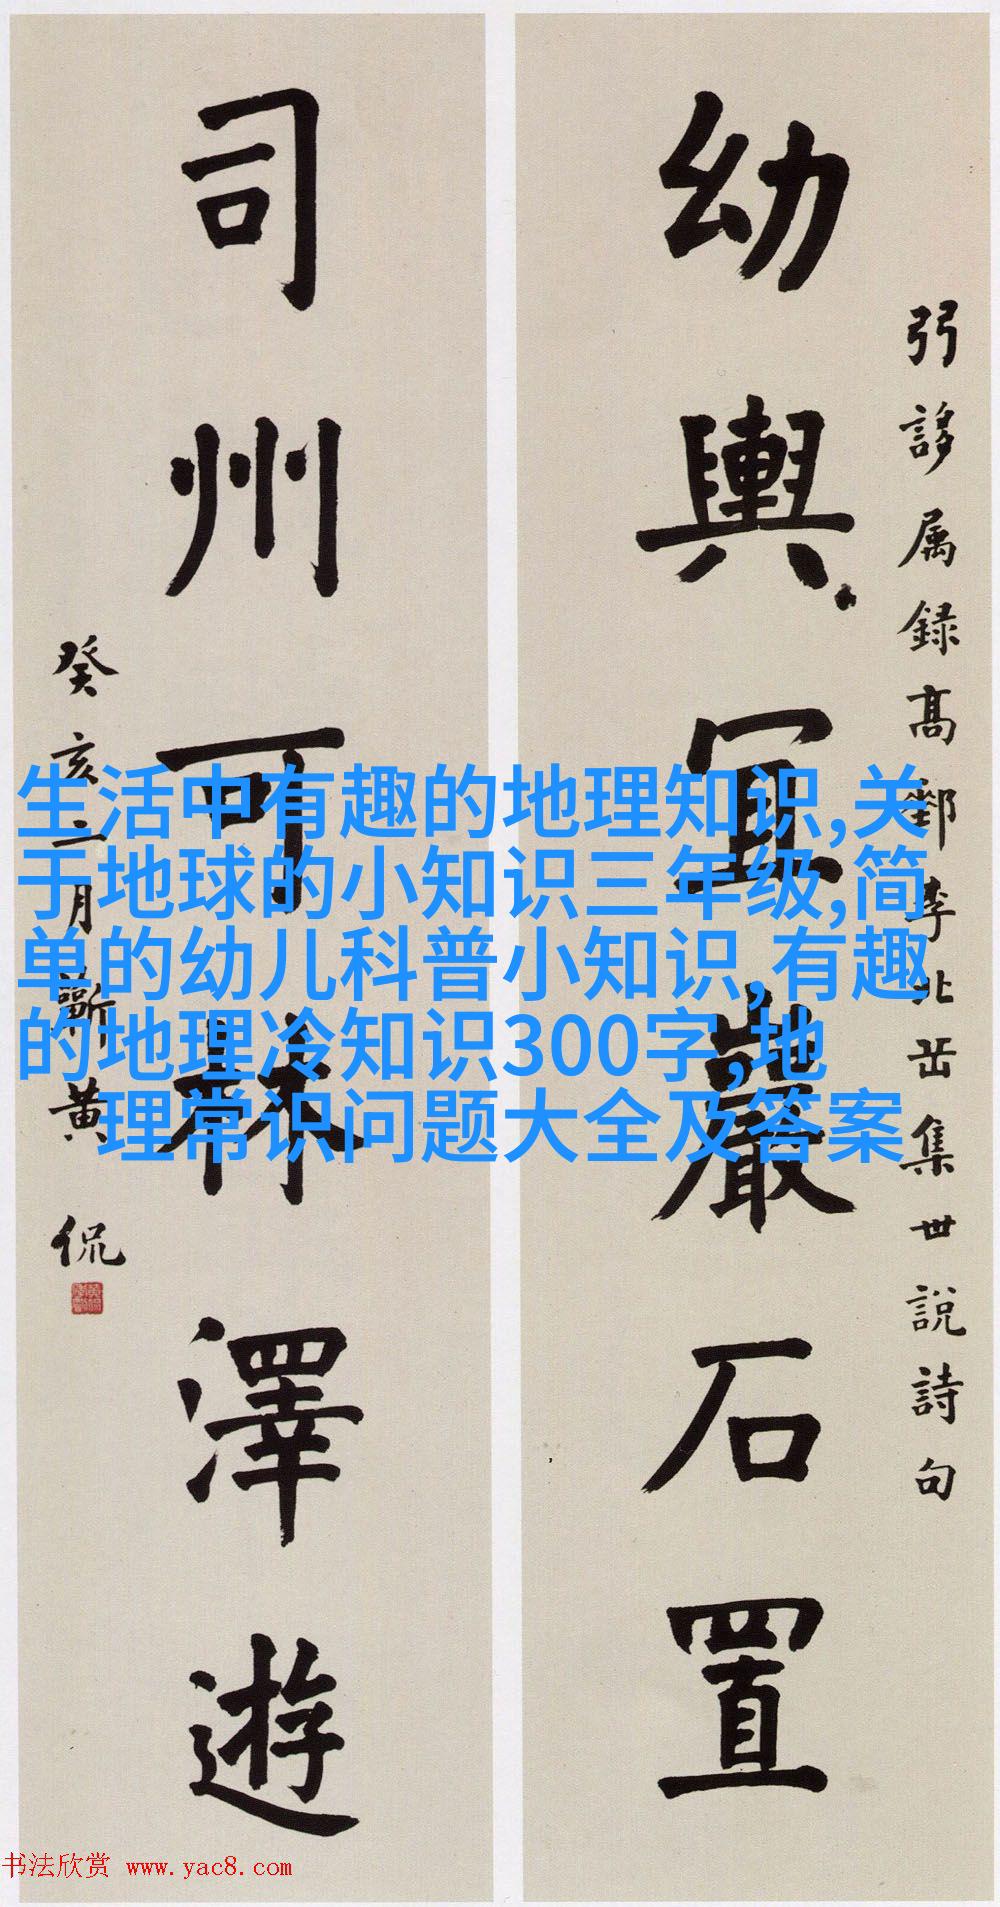 弜誃属録高郵李北岳集世說詩句
幼輿宜巖石置
司州可林澤遊
癸亥二月蘄黄侃
生活中有趣的地理知识,关
于地球的小知识三年级,简
单的幼儿科普小知识,有趣
的地理冷知识300字,地
理常识问题大全及答案
书法欣赏 www.yac8.com